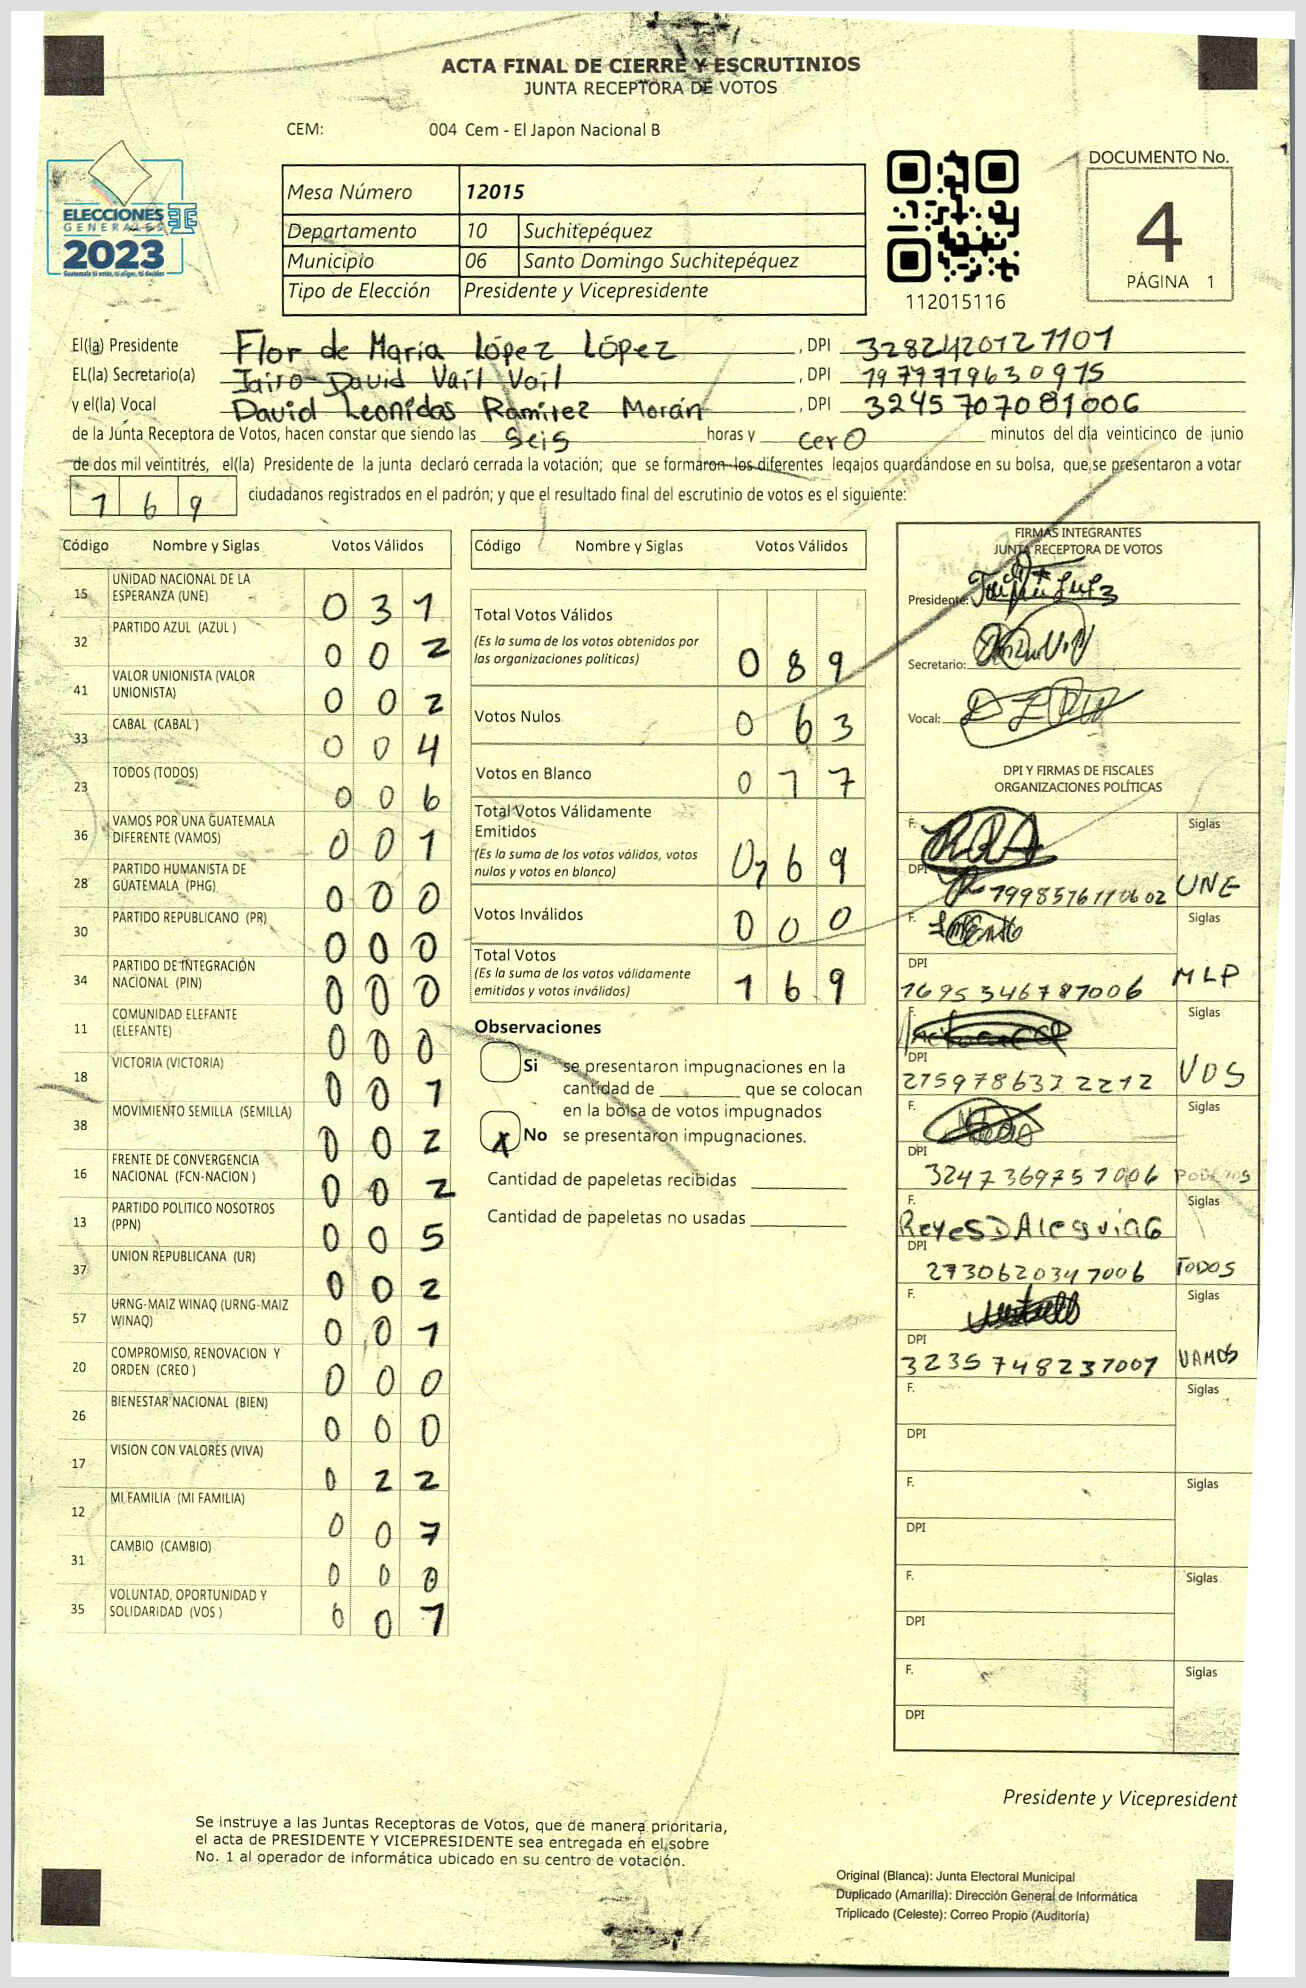 ACTA FINAL DE CIERRE Y ESCRUTINIOS
JUNTA RECEPTORA DE VOTOS
CEM: 004 Cem - El Japon Nacional B
ELECCIONES
GENERALES
2023
Guatemala tú votas, tú eliges, tú decides
Mesa Número 12015
Departamento 10 Suchitepéquez
Municipio 06 Santo Domingo Suchitepéquez
Tipo de Elección Presidente y Vicepresidente
112015116
DOCUMENTO No.
4
PÁGINA 1
El(la) Presidente Flor de María López López , DPI 3282420121101
EL(la) Secretario(a) Jairo David Vail Vail , DPI 1979719630915
y el(la) Vocal David Leonidas Ramirez Morán , DPI 3245707081006
de la Junta Receptora de Votos, hacen constar que siendo las seis horas y cero minutos del día veinticinco de junio
de dos mil veintitrés, el(la) Presidente de la junta declaró cerrada la votación; que se formaron los diferentes legajos guardándose en su bolsa, que se presentaron a votar
169 ciudadanos registrados en el padrón; y que el resultado final del escrutinio de votos es el siguiente:
Código Nombre y Siglas Votos Válidos
15 UNIDAD NACIONAL DE LA ESPERANZA (UNE) 031
32 PARTIDO AZUL (AZUL ) 002
41 VALOR UNIONISTA (VALOR UNIONISTA) 002
33 CABAL (CABAL ) 004
23 TODOS (TODOS) 006
36 VAMOS POR UNA GUATEMALA DIFERENTE (VAMOS) 001
28 PARTIDO HUMANISTA DE GUATEMALA (PHG) 000
30 PARTIDO REPUBLICANO (PR) 000
34 PARTIDO DE INTEGRACIÓN NACIONAL (PIN) 000
11 COMUNIDAD ELEFANTE (ELEFANTE) 000
18 VICTORIA (VICTORIA) 001
38 MOVIMIENTO SEMILLA (SEMILLA) 002
16 FRENTE DE CONVERGENCIA NACIONAL (FCN-NACION ) 002
13 PARTIDO POLITICO NOSOTROS (PPN) 005
37 UNION REPUBLICANA (UR) 002
57 URNG-MAIZ WINAQ (URNG-MAIZ WINAQ) 001
20 COMPROMISO, RENOVACION Y ORDEN (CREO ) 000
26 BIENESTAR NACIONAL (BIEN) 000
17 VISION CON VALORES (VIVA) 022
12 MI FAMILIA (MI FAMILIA) 007
31 CAMBIO (CAMBIO) 000
35 VOLUNTAD, OPORTUNIDAD Y SOLIDARIDAD (VOS ) 001
Código Nombre y Siglas Votos Válidos
Total Votos Válidos
(Es la suma de los votos obtenidos por
las organizaciones políticas) 089
Votos Nulos 063
Votos en Blanco 017
Total Votos Válidamente
Emitidos
(Es la suma de los votos válidos, votos
nulos y votos en blanco) 0169
Votos Inválidos 000
Total Votos
(Es la suma de los votos válidamente
emitidos y votos inválidos) 169
Observaciones
Si se presentaron impugnaciones en la
cantidad de ________ que se colocan
en la bolsa de votos impugnados
X No se presentaron impugnaciones.
Cantidad de papeletas recibidas
Cantidad de papeletas no usadas
FIRMAS INTEGRANTES
JUNTA RECEPTORA DE VOTOS
Presidente:
Secretario:
Vocal:
DPI Y FIRMAS DE FISCALES
ORGANIZACIONES POLÍTICAS
F. Siglas
DPI 1998576110602 UNE
F. Siglas
DPI 1695346787006 MLP
F. Siglas
DPI 2159786332212 VOS
F. Siglas
DPI 3247369751006 PODEMOS
F. Reyes D Alesquia G Siglas
DPI 2730620341006 TODOS
F. Siglas
DPI 3235748231007 VAMOS
F. Siglas
DPI
F. Siglas
DPI
F. Siglas
DPI
F. Siglas
DPI
Presidente y Vicepresident
Se instruye a las Juntas Receptoras de Votos, que de manera prioritaria,
el acta de PRESIDENTE Y VICEPRESIDENTE sea entregada en el sobre
No. 1 al operador de informática ubicado en su centro de votación.
Original (Blanca): Junta Electoral Municipal
Duplicado (Amarilla): Dirección General de Informática
Triplicado (Celeste): Correo Propio (Auditoría)